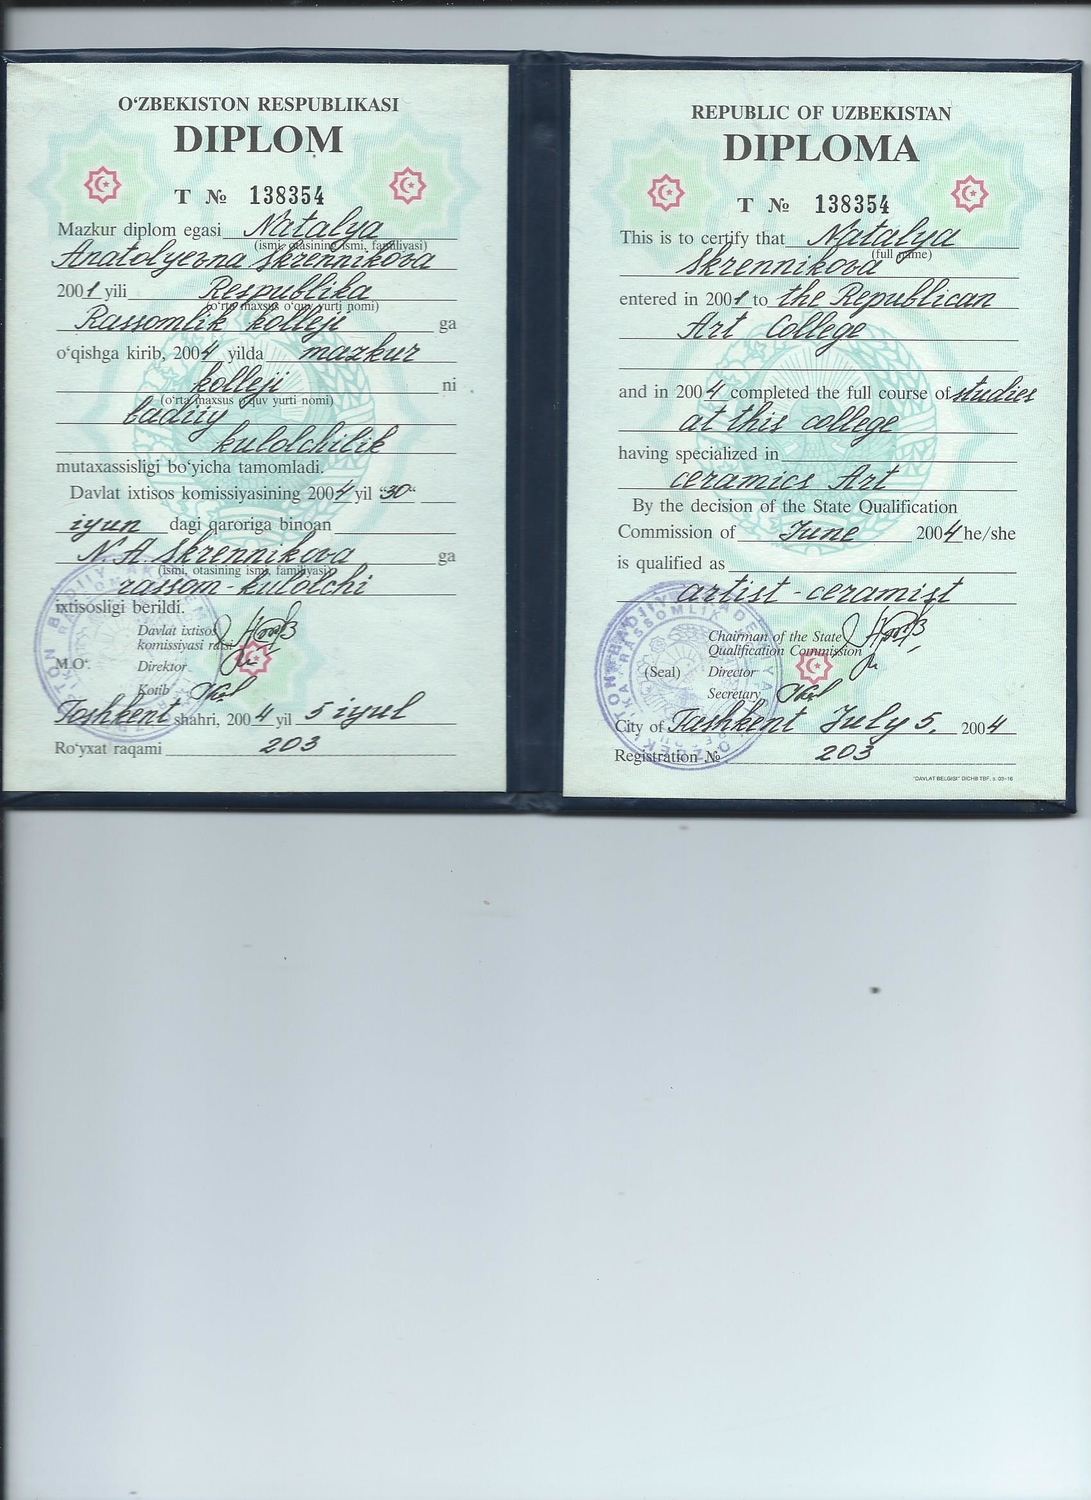 O‘ZBEKISTON RESPUBLIKASI
DIPLOM
T № 138354
Mazkur diplom egasi Natalya
(ismi, otasining ismi, familiyasi)
Anatolyevna Skrennikova
2001 yili Respublika
(o‘rta maxsus o‘quv yurti nomi)
Rassomlik kolleji ga
o‘qishga kirib, 2004 yilda mazkur
kolleji ni
(o‘rta maxsus o‘quv yurti nomi)
badiiy
kulolchilik
mutaxassisligi bo‘yicha tamomladi.
Davlat ixtisos komissiyasining 2004 yil “30“
iyun dagi qaroriga binoan
N.A.Skrennikova ga
(ismi, otasining ismi, familiyasi)
rassom-kulolchi
ixtisosligi berildi.
Davlat ixtisos
komissiyasi raisi
M.O‘. Direktor
Kotib
Toshkent shahri, 2004 yil 5 iyul
Ro‘yxat raqami 203
REPUBLIC OF UZBEKISTAN
DIPLOMA
T № 138354
This is to certify that Natalya
(full name)
Skrennikova
entered in 2001 to the Republican
Art College
and in 2004 completed the full course of studies
at this college
having specialized in
ceramics Art
By the decision of the State Qualification
Commission of June 2004 he/she
is qualified as
artist-ceramist
Chairman of the State
Qualification Commission
(Seal) Director
Secretary
City of Tashkent July 5. 2004
Registration № 203
"DAVLAT BELGISI" DICHB TBF. s. 03–16